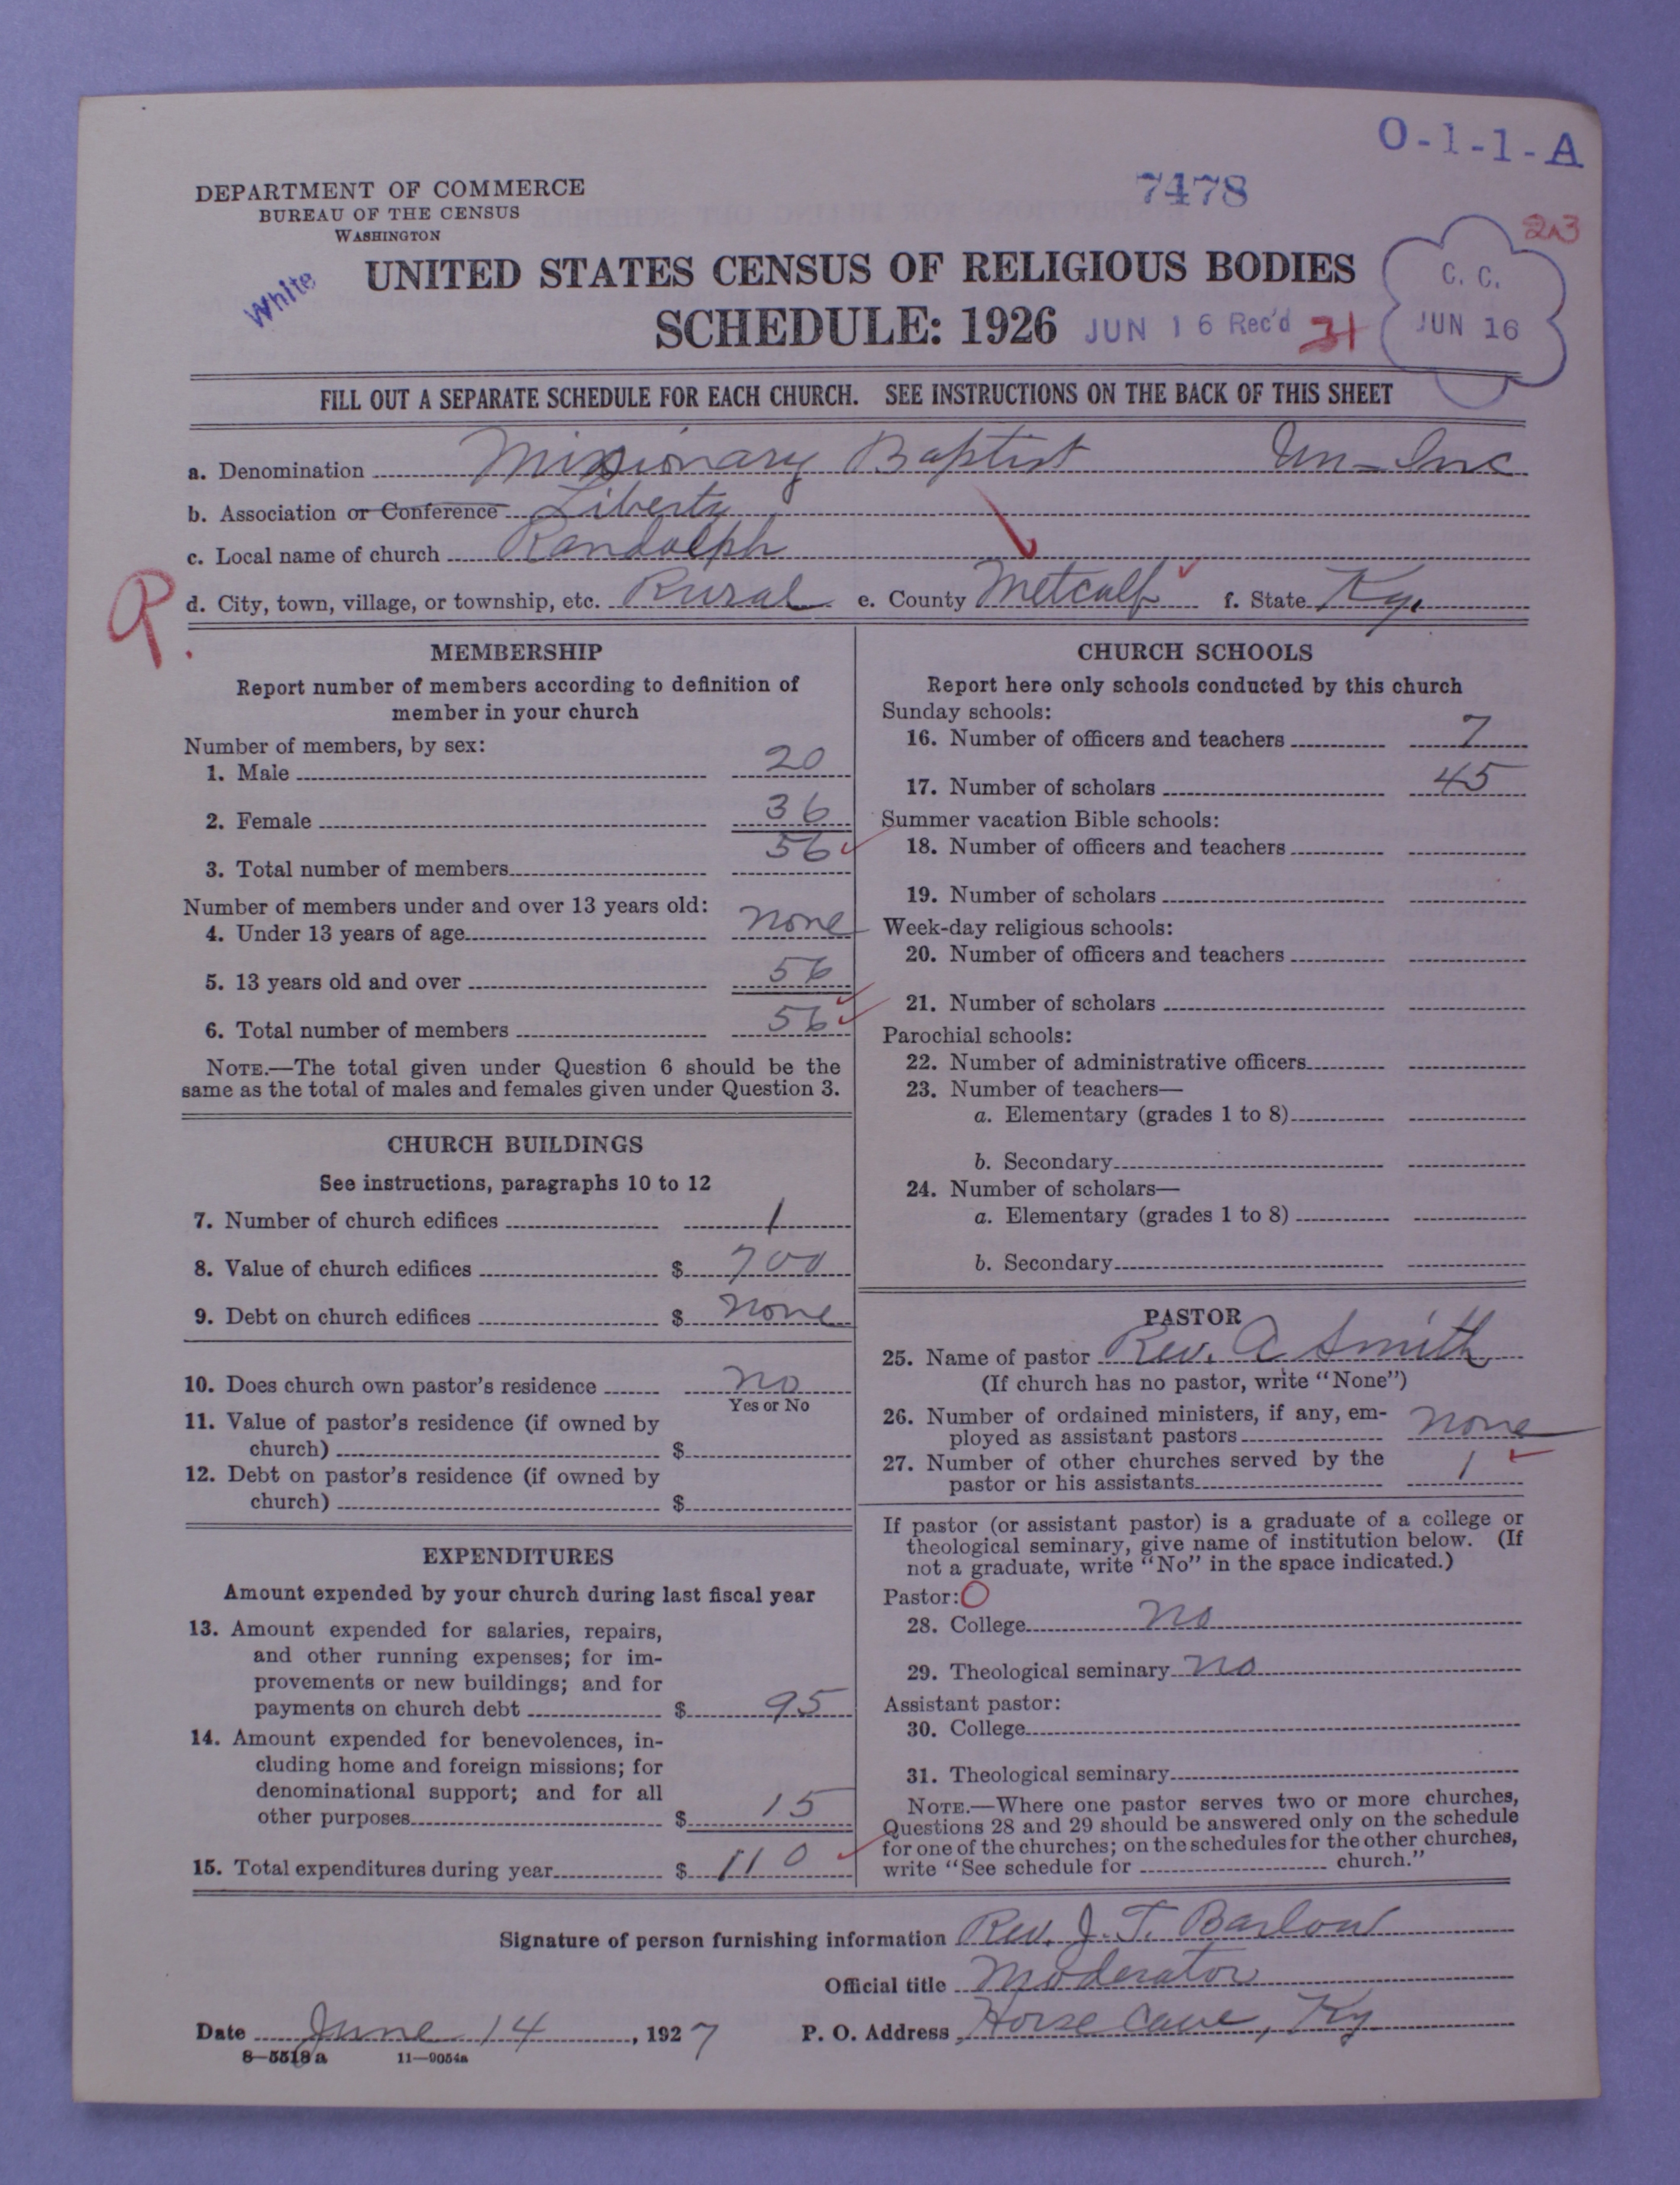 O-1-1-A
DEPARTMENT OF COMMERCE
BUREAU OF THE CENSUS
WASHINGTON
7478
White
UNITED STATES CENSUS OF RELIGIOUS BODIES
SCHEDULE: 1926
JUN 16 Rec'd
31
C. C.
JUN 16
FILL OUT A SEPARATE SCHEDULE FOR EACH CHURCH. SEE INSTRUCTIONS ON THE BACK OF THIS SHEET
a. Denomination Missionary Baptist Un-Inc
b. Association or Conference Liberty
c. Local name of church Randolph
R.
d. City, town, village, or township, etc. Rural e. County Metcalf f. State Ky.
MEMBERSHIP
Report number of members according to definition of
member in your church
Number of members, by sex:
1. Male 20
2. Female 36
3. Total number of members 56
Number of members under and over 13 years old:
4. Under 13 years of age none
5. 13 years old and over 56
6. Total number of members 56
NOTE.—The total given under Question 6 should be the
same as the total of males and females given under Question 3.
CHURCH BUILDINGS
See instructions, paragraphs 10 to 12
7. Number of church edifices 1
8. Value of church edifices $ 700
9. Debt on church edifices $ none
10. Does church own pastor's residence no
Yes or No
11. Value of pastor's residence (if owned by
church) $
12. Debt on pastor's residence (if owned by
church) $
EXPENDITURES
Amount expended by your church during last fiscal year
13. Amount expended for salaries, repairs,
and other running expenses; for im-
provements or new buildings; and for
payments on church debt $ 95
14. Amount expended for benevolences, in-
cluding home and foreign missions; for
denominational support; and for all
other purposes $ 15
15. Total expenditures during year $ 110
CHURCH SCHOOLS
Report here only schools conducted by this church
Sunday schools:
16. Number of officers and teachers 7
17. Number of scholars 45
Summer vacation Bible schools:
18. Number of officers and teachers
19. Number of scholars
Week-day religious schools:
20. Number of officers and teachers
21. Number of scholars
Parochial schools:
22. Number of administrative officers
23. Number of teachers—
a. Elementary (grades 1 to 8)
b. Secondary
24. Number of scholars—
a. Elementary (grades 1 to 8)
b. Secondary
PASTOR
25. Name of pastor Rev. A Smith
(If church has no pastor, write "None")
26. Number of ordained ministers, if any, em-
ployed as assistant pastors none
27. Number of other churches served by the
pastor or his assistants 1
If pastor (or assistant pastor) is a graduate of a college or
theological seminary, give name of institution below. (If
not a graduate, write "No" in the space indicated.)
Pastor: O
28. College no
29. Theological seminary no
Assistant pastor:
30. College
31. Theological seminary
NOTE.—Where one pastor serves two or more churches,
Questions 28 and 29 should be answered only on the schedule
for one of the churches; on the schedules for the other churches,
write "See schedule for church."
Signature of person furnishing information Rev. J. T. Barlow
Official title Moderator
Date June 14, 1927 P. O. Address Horse Cave, Ky
8-5518 a 11-9054a